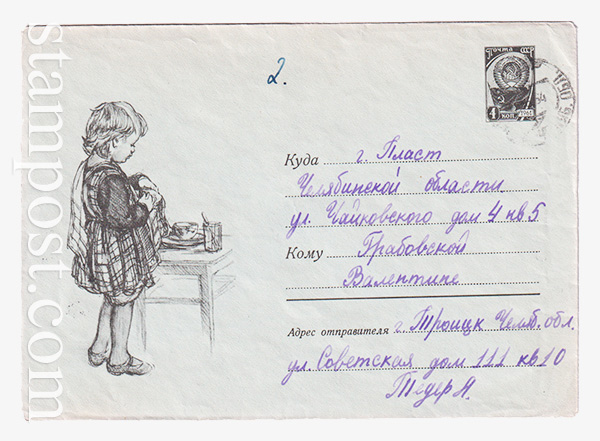 2.
Почта СССР
4 коп. 1961
Куда г. Пласт
Челябинской области
ул. Чайковского дом 4 кв 5
Кому Грабовской
Валентине
Адрес отправителя г. Троицк Челяб. обл.
ул. Советская дом 111 кв 10
Тедер А.
stampost.com
stampost.com